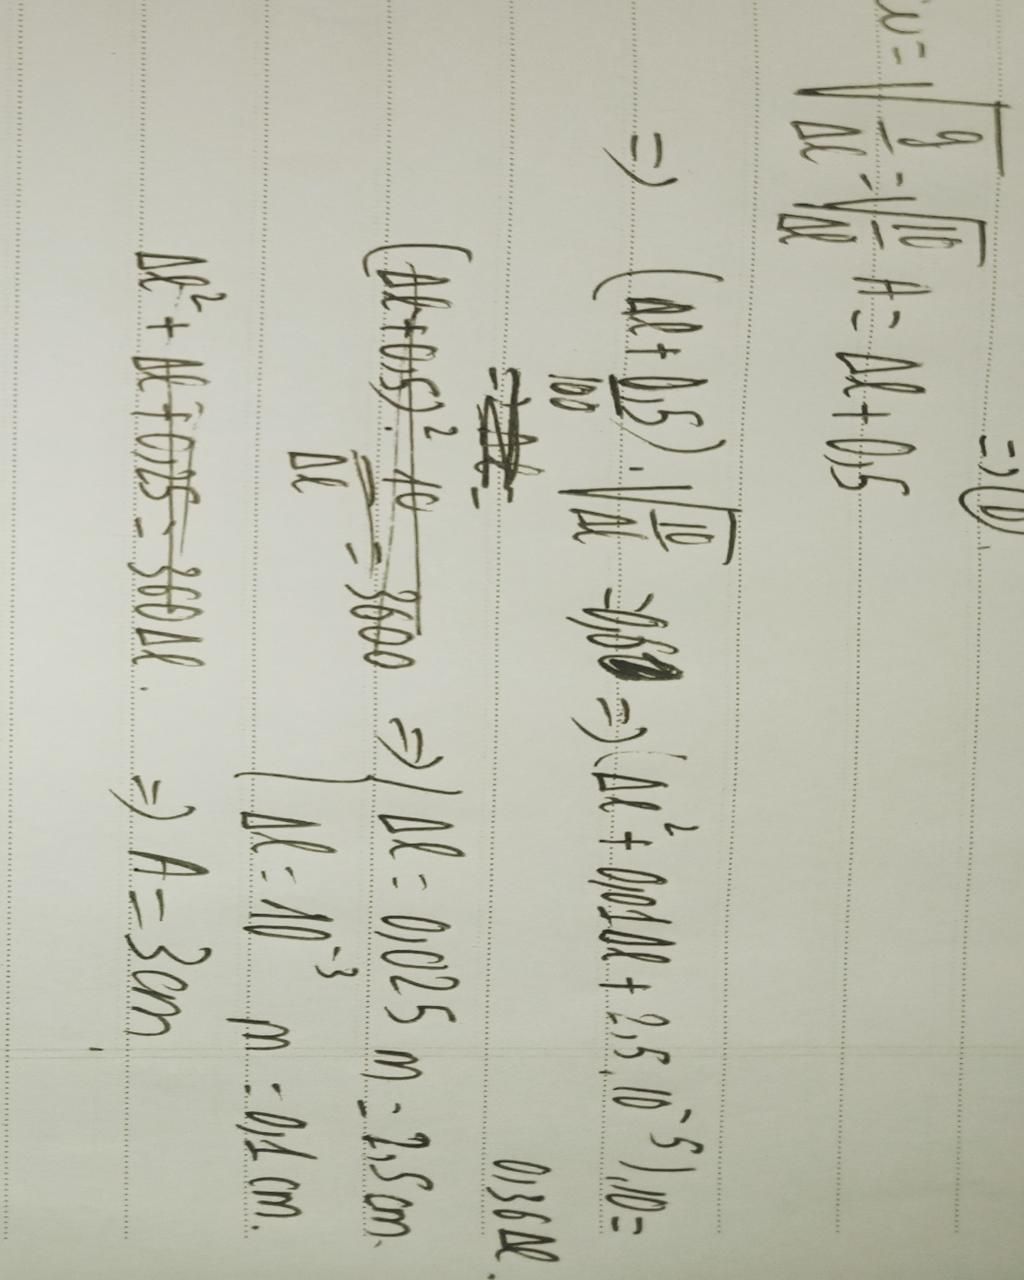 => (1)
ω = √(g/Δl) = √(10/Δl) A = Δl + 0,5
=> (Δl + 0,5/100) . √(10/Δl) = 0,6 => (Δl² + 0,01Δl + 2,5.10⁻⁵).10 =
0,36Δl.
(Δl + 0,5)² . 10/Δl = 3600 => Δl = 0,025 m = 2,5 cm.
Δl = 10⁻³ m = 0,1 cm.
Δl² + Δl + 0,25 = 360Δl. => A = 3cm